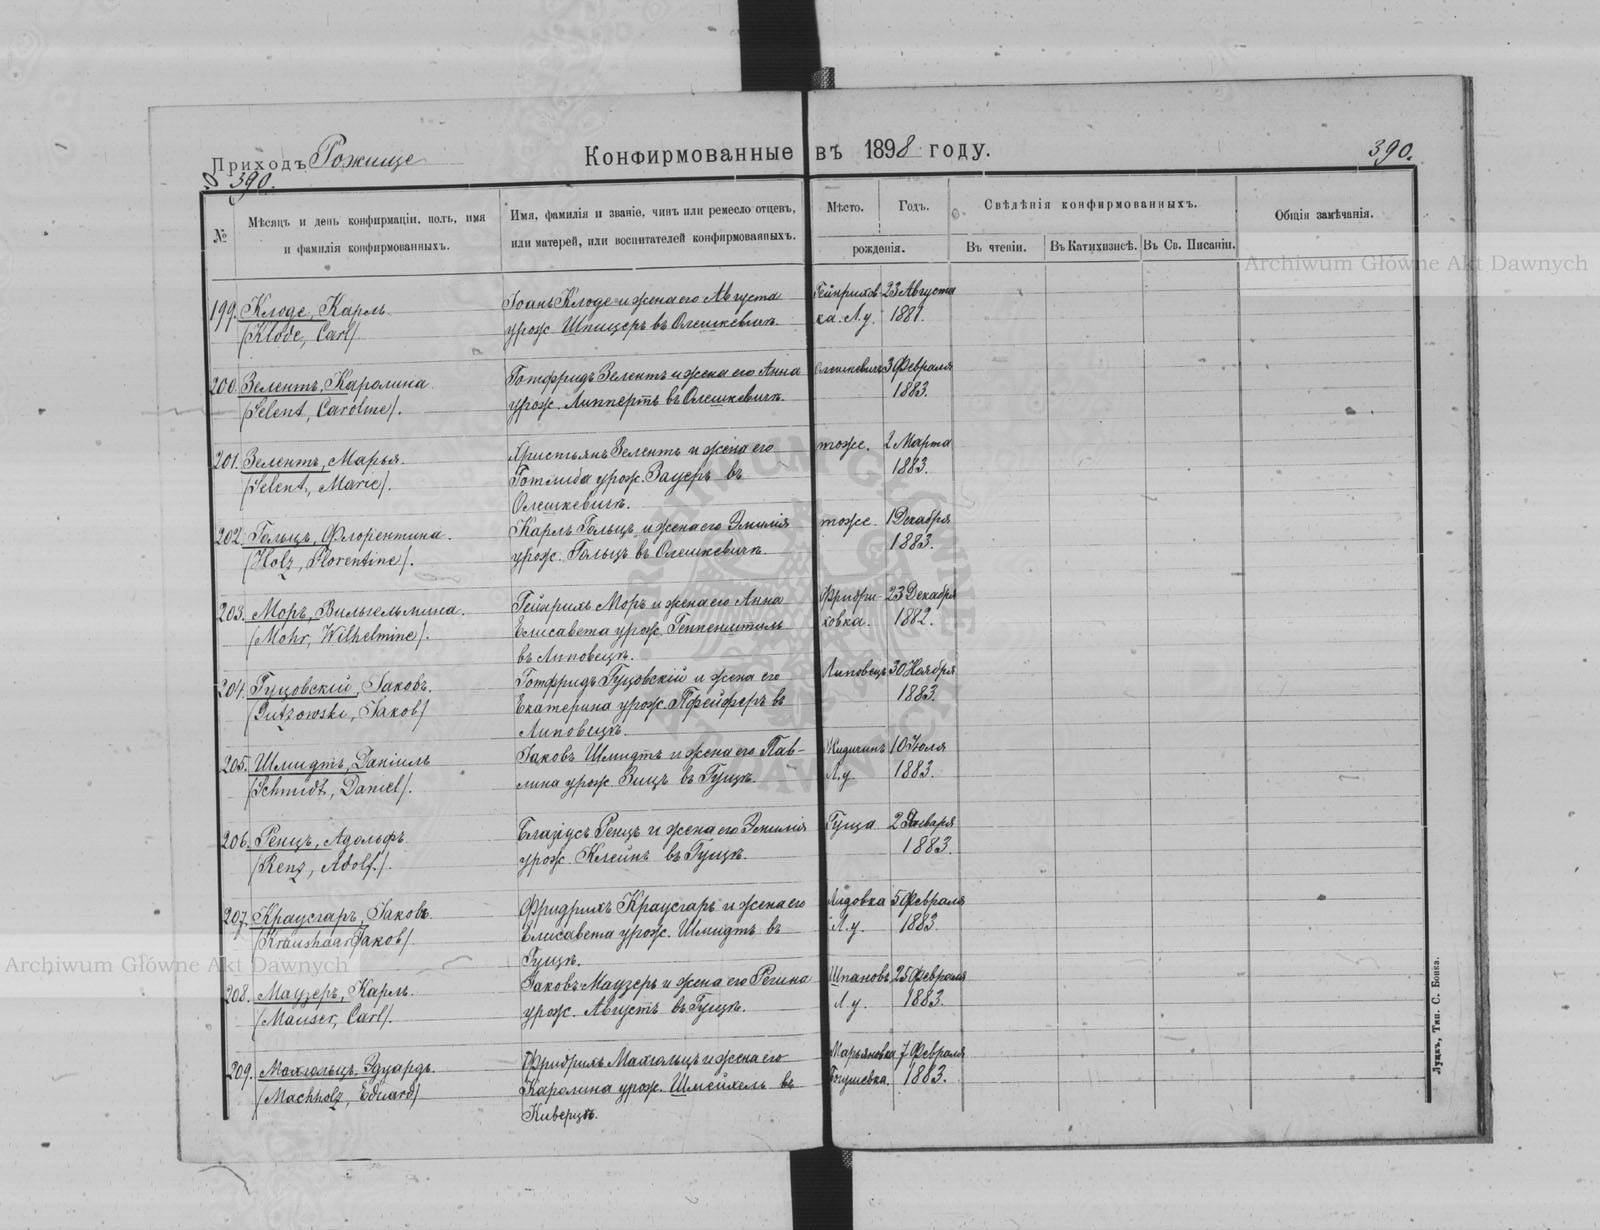 Приходъ Рожище
Конфирмованные въ 1898 году.
390.
390.
№
Мѣсяцъ и день конфирмаціи, полъ, имя
и фамилія конфирмованныхъ.
Имя, фамилія и званіе, чинъ или ремесло отцевъ,
или матерей, или воспитателей конфирмованныхъ.
Мѣсто.
Годъ.
рожденія.
Свѣдѣнія конфирмованныхъ.
Въ чтеніи.
Въ Катихизисѣ.
Въ Св. Писаніи.
Общія замѣчанія.
199. Клоде, Карлъ
(Klode, Carl)
Іоанъ Клоде и жена его Августа
урож. Шпицеръ въ Олешкевичъ.
Гейнрихов
ка. Л. у.
23 Августа
1881.
200. Зелентъ, Каролина
(Selent, Caroline).
Готфридъ Зелентъ и жена его Анна
урож. Липпертъ въ Олешкевичъ.
Олешкевичъ
3 Февраля
1883.
201. Зелентъ, Марья.
(Selent, Marie).
Христьянъ Зелентъ и жена его
Готлиба урож. Зауеръ въ
Олешкевичъ.
тоже.
2 Марта
1883.
202. Гольцъ, Флорентина.
(Holz, Florentine).
Карлъ Гольцъ и жена его Эмилія
урож. Гольцъ въ Олешкевичъ.
тоже.
1 Декабря
1883.
203. Моръ, Вильгельмина.
(Mohr, Wilhelmine).
Гейнрихъ Моръ и жена его Анна
Елисавета урож.
въ Липовецъ.
Фридри-
ховка.
23 Декабря
1882.
204. Гуцовскій, Іаковъ.
(Gutzowski, Jakob)
Готфридъ Гуцовскій и жена его
Екатерина урож. Пфейферъ въ
Липовецъ.
Липовецъ
30 Ноября
1883.
205. Шмидтъ, Даніилъ
(Schmidt, Daniel).
Іаковъ Шмидтъ и жена его Пав-
лина урож. Зицъ въ Гущѣ.
Жидичинъ
Л. у.
10 Іюля
1883.
206. Ренцъ, Адольфъ
(Renz, Adolf.).
Блазіусъ Ренцъ и жена его Эмилія
урож. Клейнъ въ Гущѣ.
Гуща
2 Января
1883.
207. Краусгаръ, Іаковъ.
(Kraushaar Jakob)
Фридрихъ Краусгаръ и жена его
Елисавета урож. Шмидтъ въ
Гущѣ.
Лидовка
Л. у.
5 Февраля
1883.
208. Маузеръ, Карлъ.
(Mauser, Carl).
Іаковъ Маузеръ и жена его Регина
урож. Августъ въ Гущѣ.
Шпановъ
Л. у.
25 Февраля
1883.
209. Махгольцъ, Эдуардъ.
(Machholz, Eduard)
Фридрихъ Махгольцъ и жена его
Каролина урож. Шмейхель въ
Киверцѣ.
Марьяновка
Богушевка.
7 Февраля
1883.
Луцкъ, Тип. С. Бонка.
Archiwum Główne Akt Dawnych
Archiwum Główne Akt Dawnych
ARCHIWUM GŁÓWNE AKT DAWNYCH